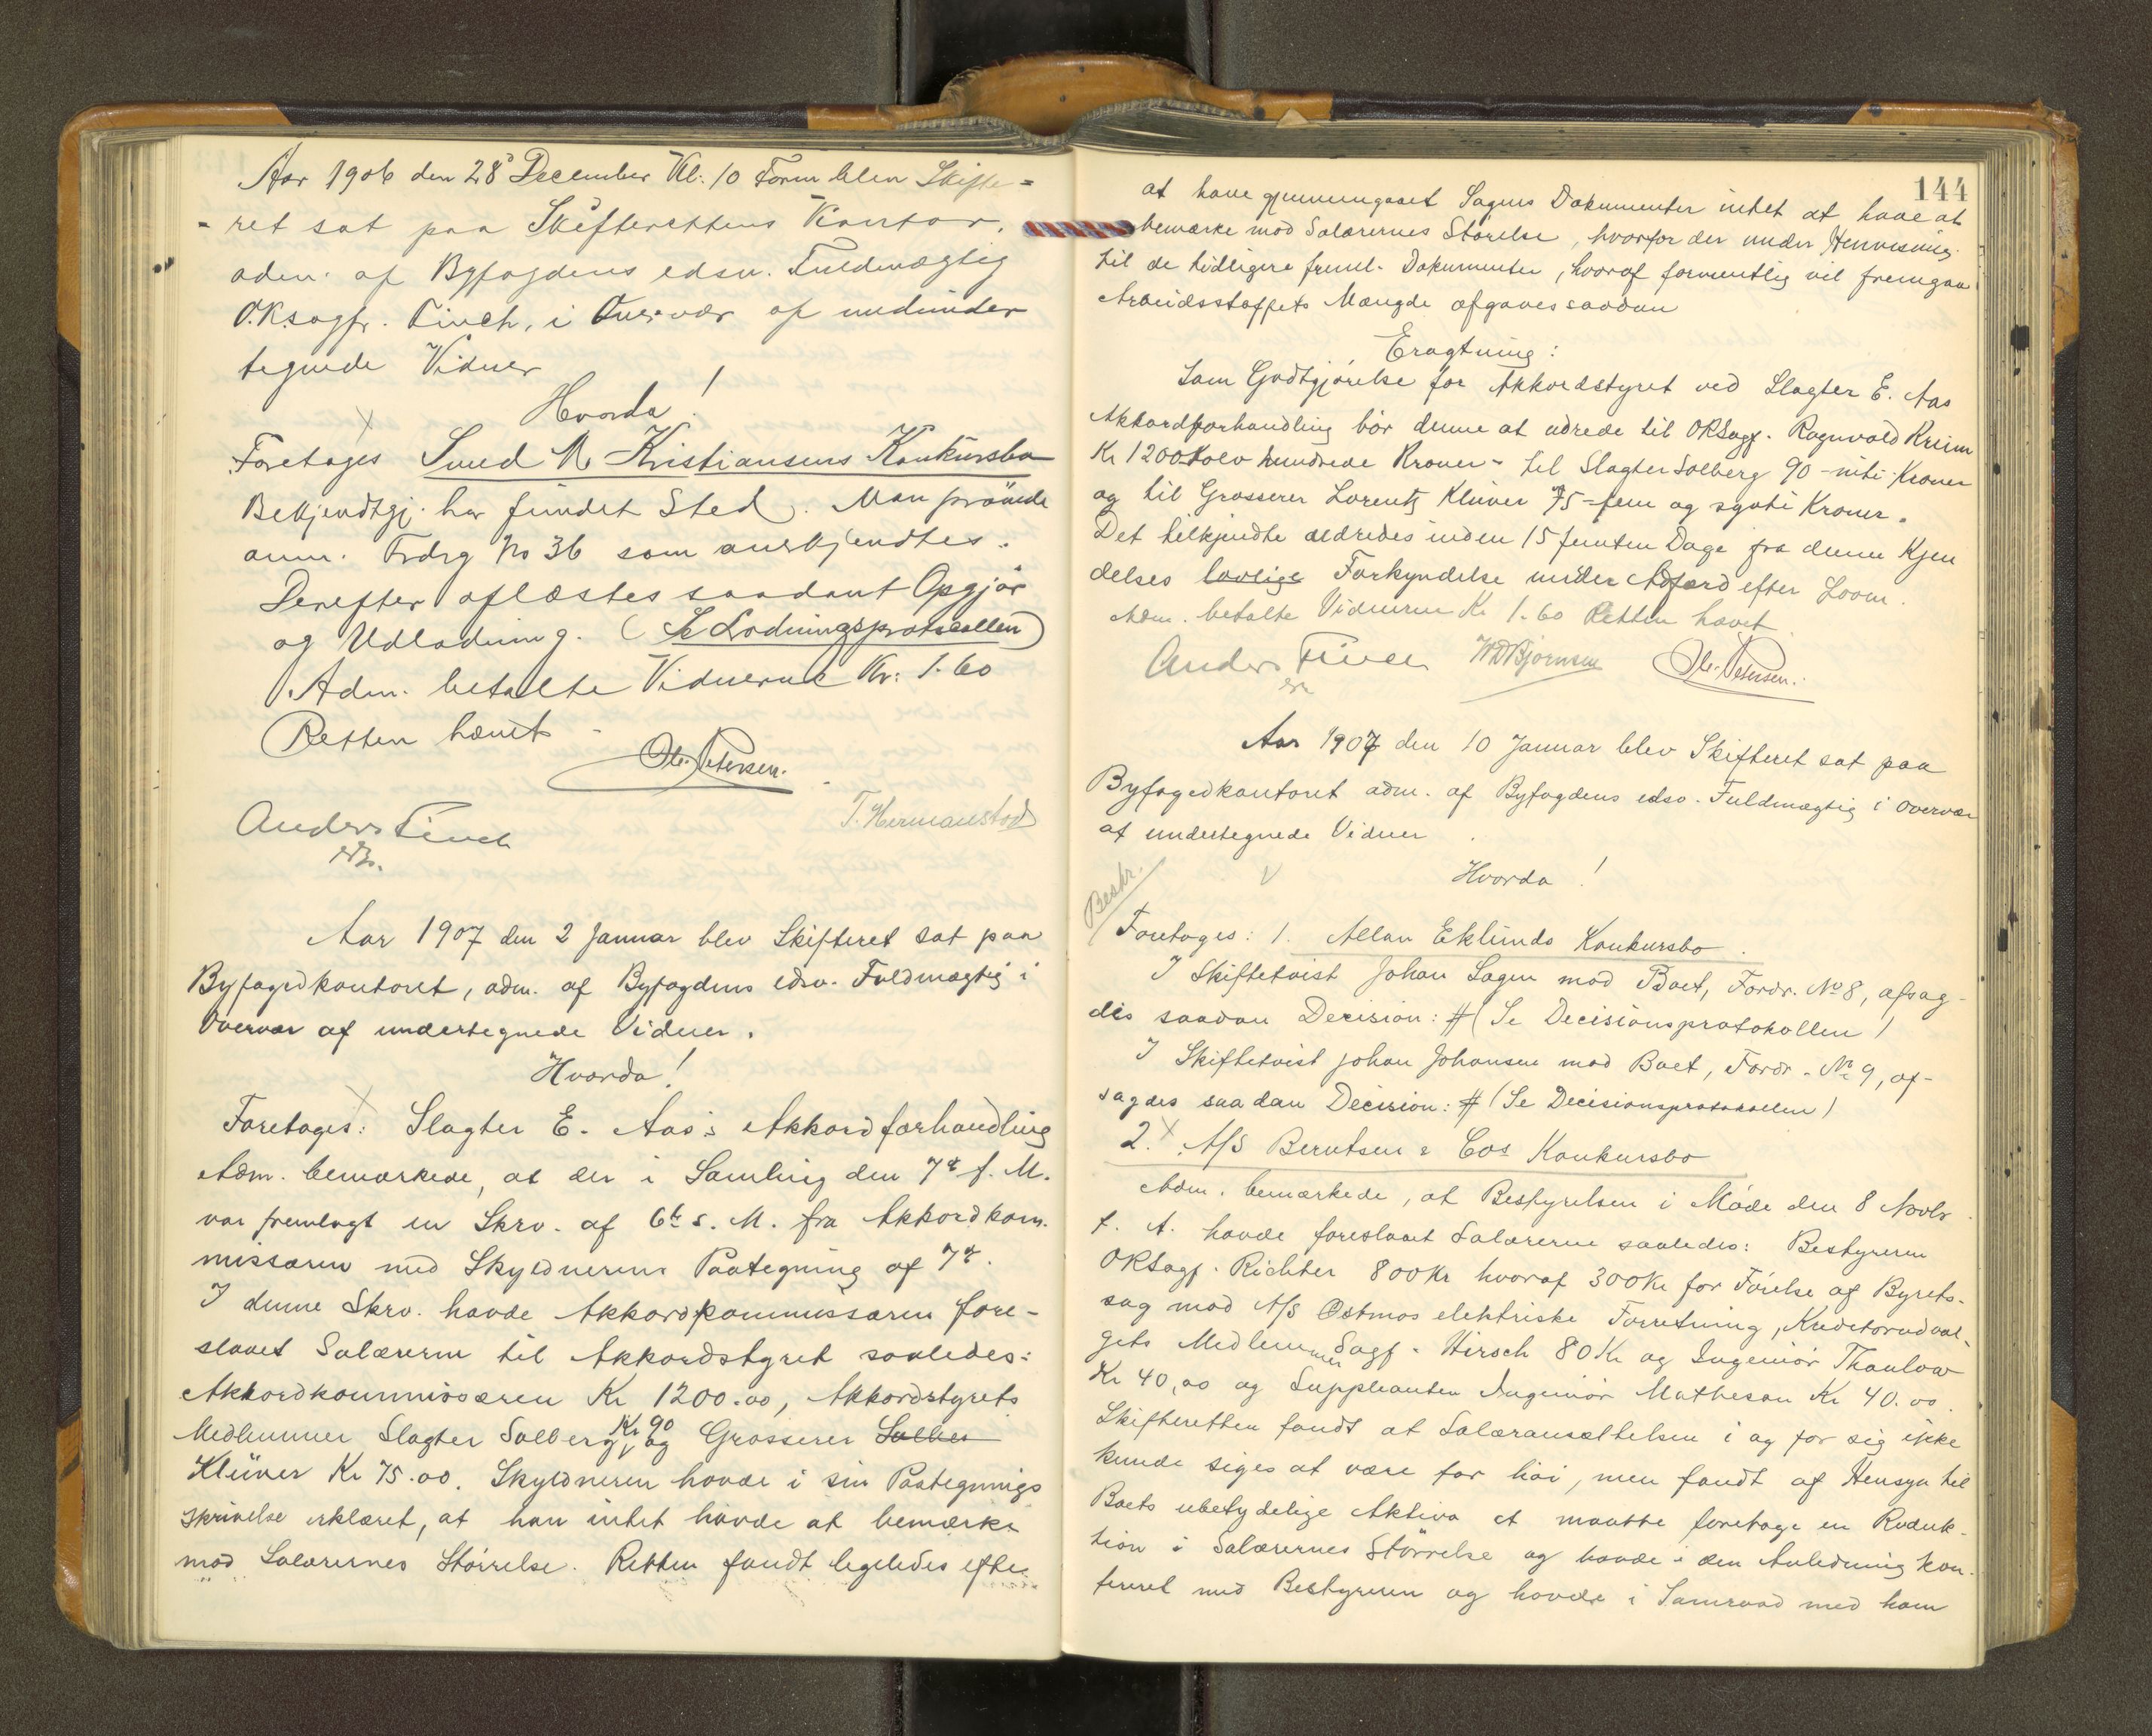 Aar 1906 den 28 December Kl: 10 Form blev Skifte=
= ret sat paa Skifterettens Kontor,
adm. af Byfogdens edsv. Fuldmægtig
O.R.sagf. Finch, i Overvær af medunder
tegnede Vidner
Hvorda!
Foretages Svend M Kristiansens Konkursbo
Bekjendtgj. har fundet Sted. Man prøvede
anm. Frdrg No 36 som anerkjendtes.
Derefter aflæstes saadant Opgjør
og Udlodning. (Se Lodningsprotocollen)
Adm. betalte Vidnerne Kr: 1.60
Retten hævet
Ole Petersen.
T. Hermanstad
Anders Finch
Aar 1907 den 2 Januar blev Skifteret sat paa
Byfogedkontoret, adm. af Byfogdens edsv. Fuldmægtig i
Overvær af undertegnede Vidner.
Hvorda!
Foretages: Slagter E. Aas's Akkordforhandling
Adm. bemærkede, at der i Samling den 7de f. M.
var fremlagt en Skrv. af 6te s. M. fra Akkordkom-
missæren med Skyldnerens Paategning af 7de.
I denne Skrv. havde Akkordkommissæren fore-
slaaet Salærerne til Akkordstyret saaledes:
Akkordkommissæren Kr 1200.00, Akkordstyrets
Medlemmer Slagter Solberg Kr 90 og Grosserer Solber
Klüver Kr 75.00. Skyldneren havde i sin Paategnings
skrivelse erklæret, at han intet havde at bemærke
mod Salærernes Størrelse. Retten fandt ligeledes efter
144
at have gjennemgaaet Sagens Dokumenter intet at have at
bemærke mod Salærernes Størelse, hvorfor der under Henvisning
til de tidligere freml. Dokumenter, hvoraf formentlig vil fremgaa
Arbeidsstoffets Mængde afgaves saadan
Eragtning:
Som Godtgjørelse for Akkordstyret ved Slagter E. Aas
Akkordforhandling bør denne at udrede til ORSagf. Ragnvald Kreim
Kr 1200 tolv hundrede Kroner - til Slagter Solberg 90 - niti Kroner
og til Grosserer Lorentz Klüver 75 - fem og sytti Kroner.
Det tilkjendte udredes inden 15 femten Dage fra denne Kjen
delses lovlige Forkyndelse under Adfærd efter Loven.
Adm. betalte Vidnerne Kr 1.60 Retten hævet
Anders Finch W D Bjørnsen Ole Petersen.
Aar 1907 den 10 Januar blev Skifteret sat paa
Byfogedkontoret adm. af Byfogdens edsv. Fuldmægtig i Overvær
af undertegnede Vidner
Hvorda!
Beskr.
Foretages: 1. Allan Eklunds Konkursbo.
I Skiftetvist Johan Sagen mod Boet, Fordr. No 8, afsag-
des saadan Decision: # (Se Decisionsprotokollen)
I Skiftetvist Johan Johansen mod Boet, Fordr. No 9, af-
sagdes saadan Decision: # (Se Decisionsprotokollen)
2. A/S Berntsen & Cos Konkursbo
Adm. bemærkede, at Bestyrelsen i Møde den 8 Novbr
f. A. havde foreslaaet Salærerne saaledes: Bestyreren
ORSagf. Richter 800 Kr hvoraf 300 Kr for Førelse af Byrets-
sag mod A/S Østmos elektriske Forretning, Kreditorudval-
gets Medlemmer Sagf. Hirsch 80 Kr og Ingeniør Thaulow
Kr 40,00 og Suppleanten Ingeniør Matheson Kr 40.00.
Skifteretten fandt at Salæransættelsen i og for sig ikke
kunde siges at være for høi, men fandt af Hensyn til
Boets ubetydelige Aktiva at maatte foretage en Reduk-
tion i Salærernes Størrelse og havde i den Anledning kon-
fereret med Bestyreren og havde i Samraad med ham